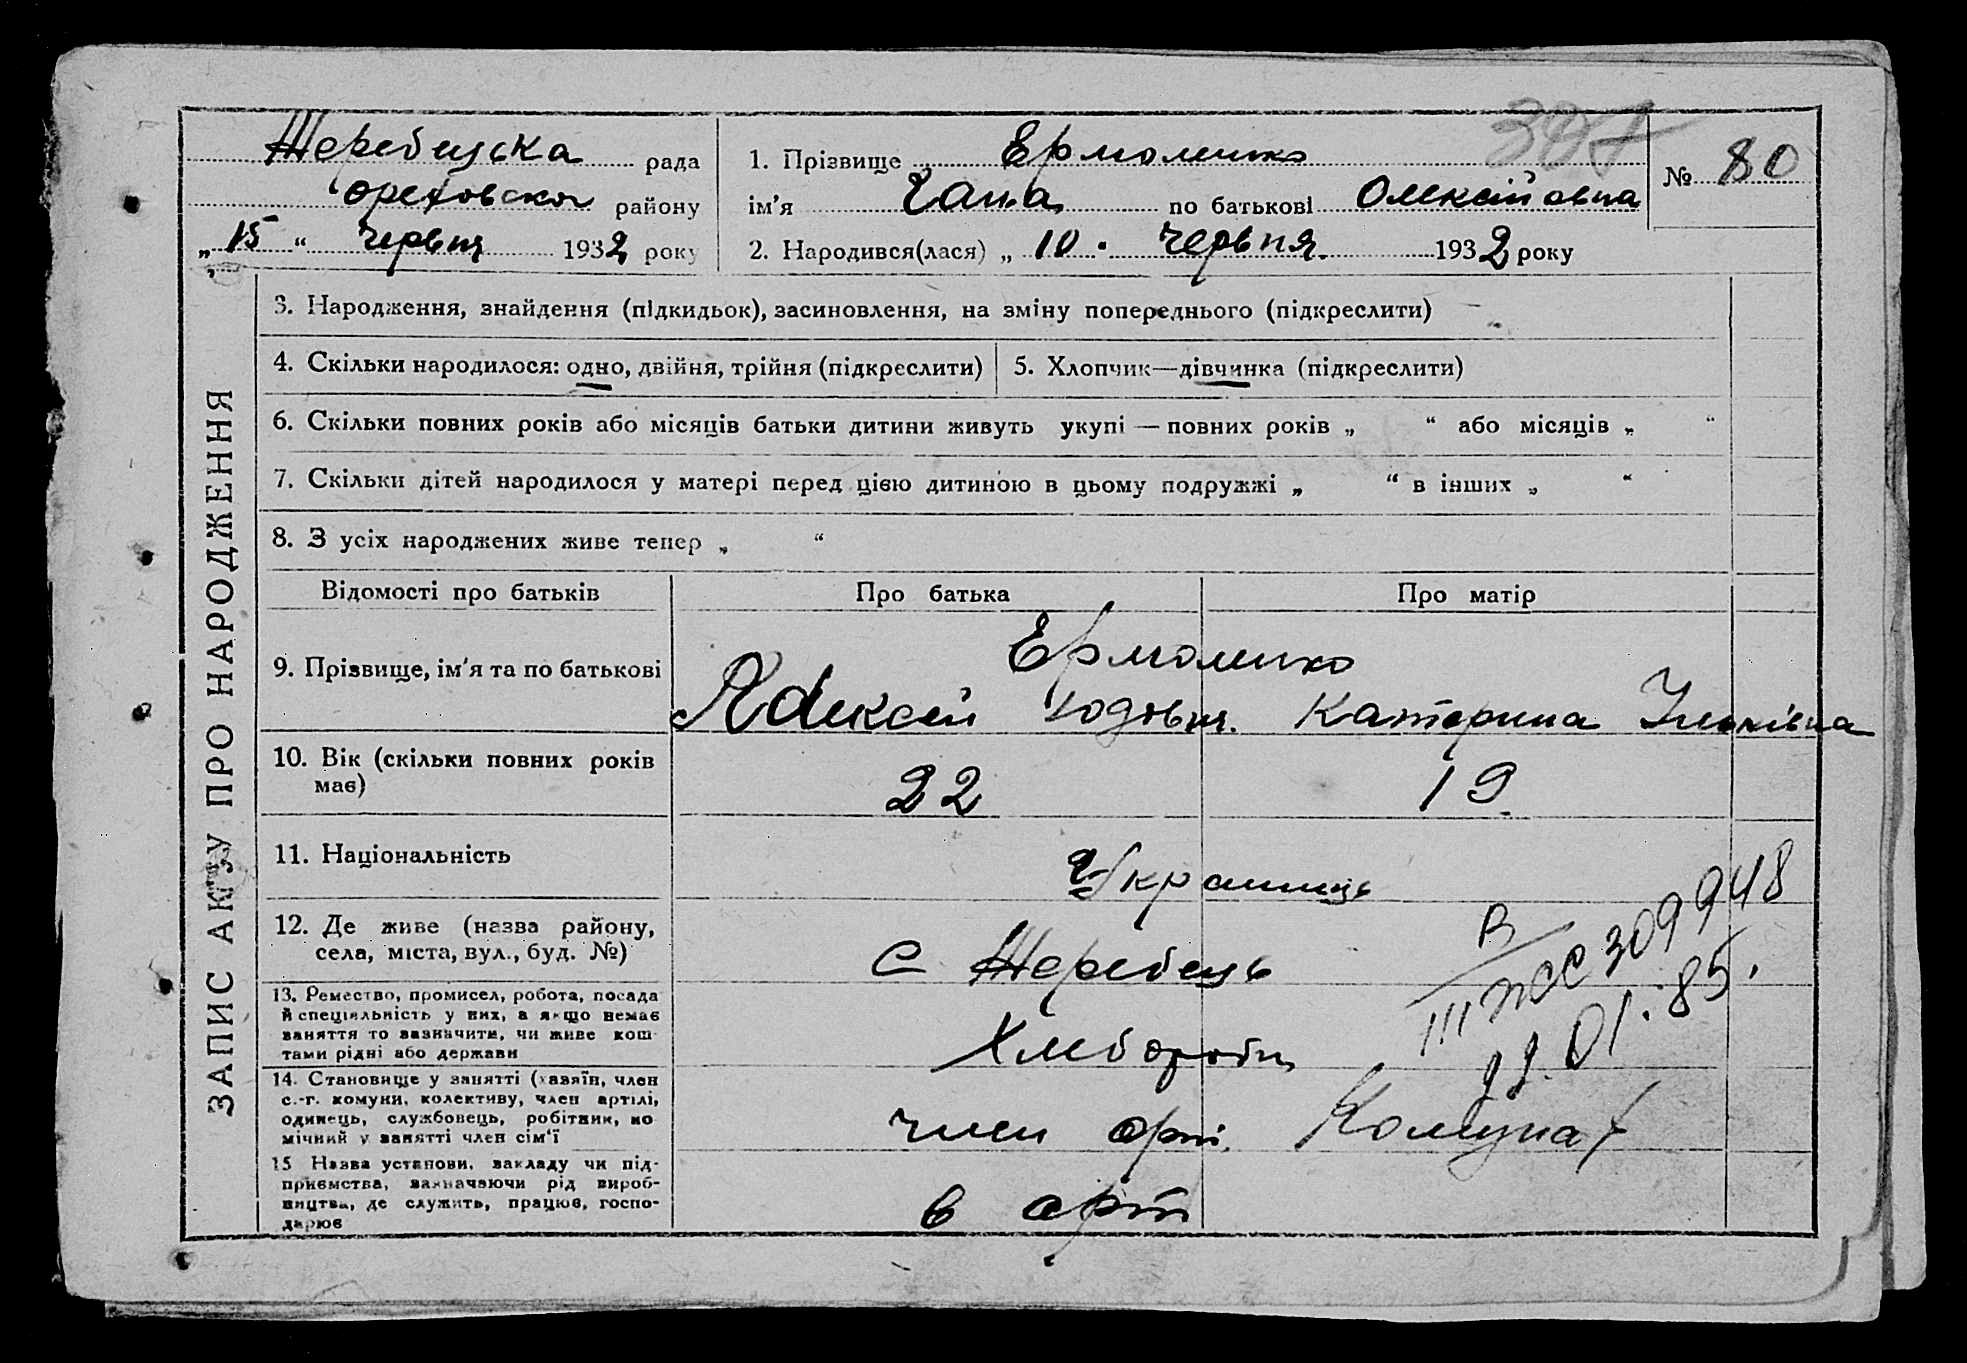 Жеребецька рада
Ореховског району
„15“ червня 1932 року
1. Прізвище Ермоленко
ім'я Гана по батькові Олексійовна
2. Народився(лася) „10. червня 1932 року
307
№ 80
ЗАПИС АКТУ ПРО НАРОДЖЕННЯ
3. Народження, знайдення (підкидьок), засиновлення, на зміну попереднього (підкреслити)
4. Скільки народилося: одно, двійня, трійня (підкреслити)
5. Хлопчик—дівчинка (підкреслити)
6. Скільки повних років або місяців батьки дитини живуть укупі — повних років „ “ або місяців „ “
7. Скільки дітей народилося у матері перед цією дитиною в цьому подружжі „ “ в інших „ “
8. З усіх народжених живе тепер „ “
Відомості про батьків
Про батька
Про матір
9. Прізвище, ім'я та по батькові
Ермоленко
Катерина
10. Вік (скільки повних років
має)
22
19
11. Національність
Українець
12. Де живе (назва району,
села, міста, вул., буд. №)
с Жеребець
13. Ремество, промисел, робота, посада
й спеціяльність у них, а якщо немає
заняття то зазначити, чи живе кош-
тами рідні або держави
Хлебороби
14. Становище у занятті (хазяїн, член
с.-г. комуни, колективу, член артілі,
одинець, службовець, робітник, по-
мічний у занятті член сім'ї
член арт. Комунат
15 Назва установи, закладу чи під-
приємства, зазначаючи рід вироб-
ництва, де служить, працює, госпо-
дарює
в арт
309948
01.85.